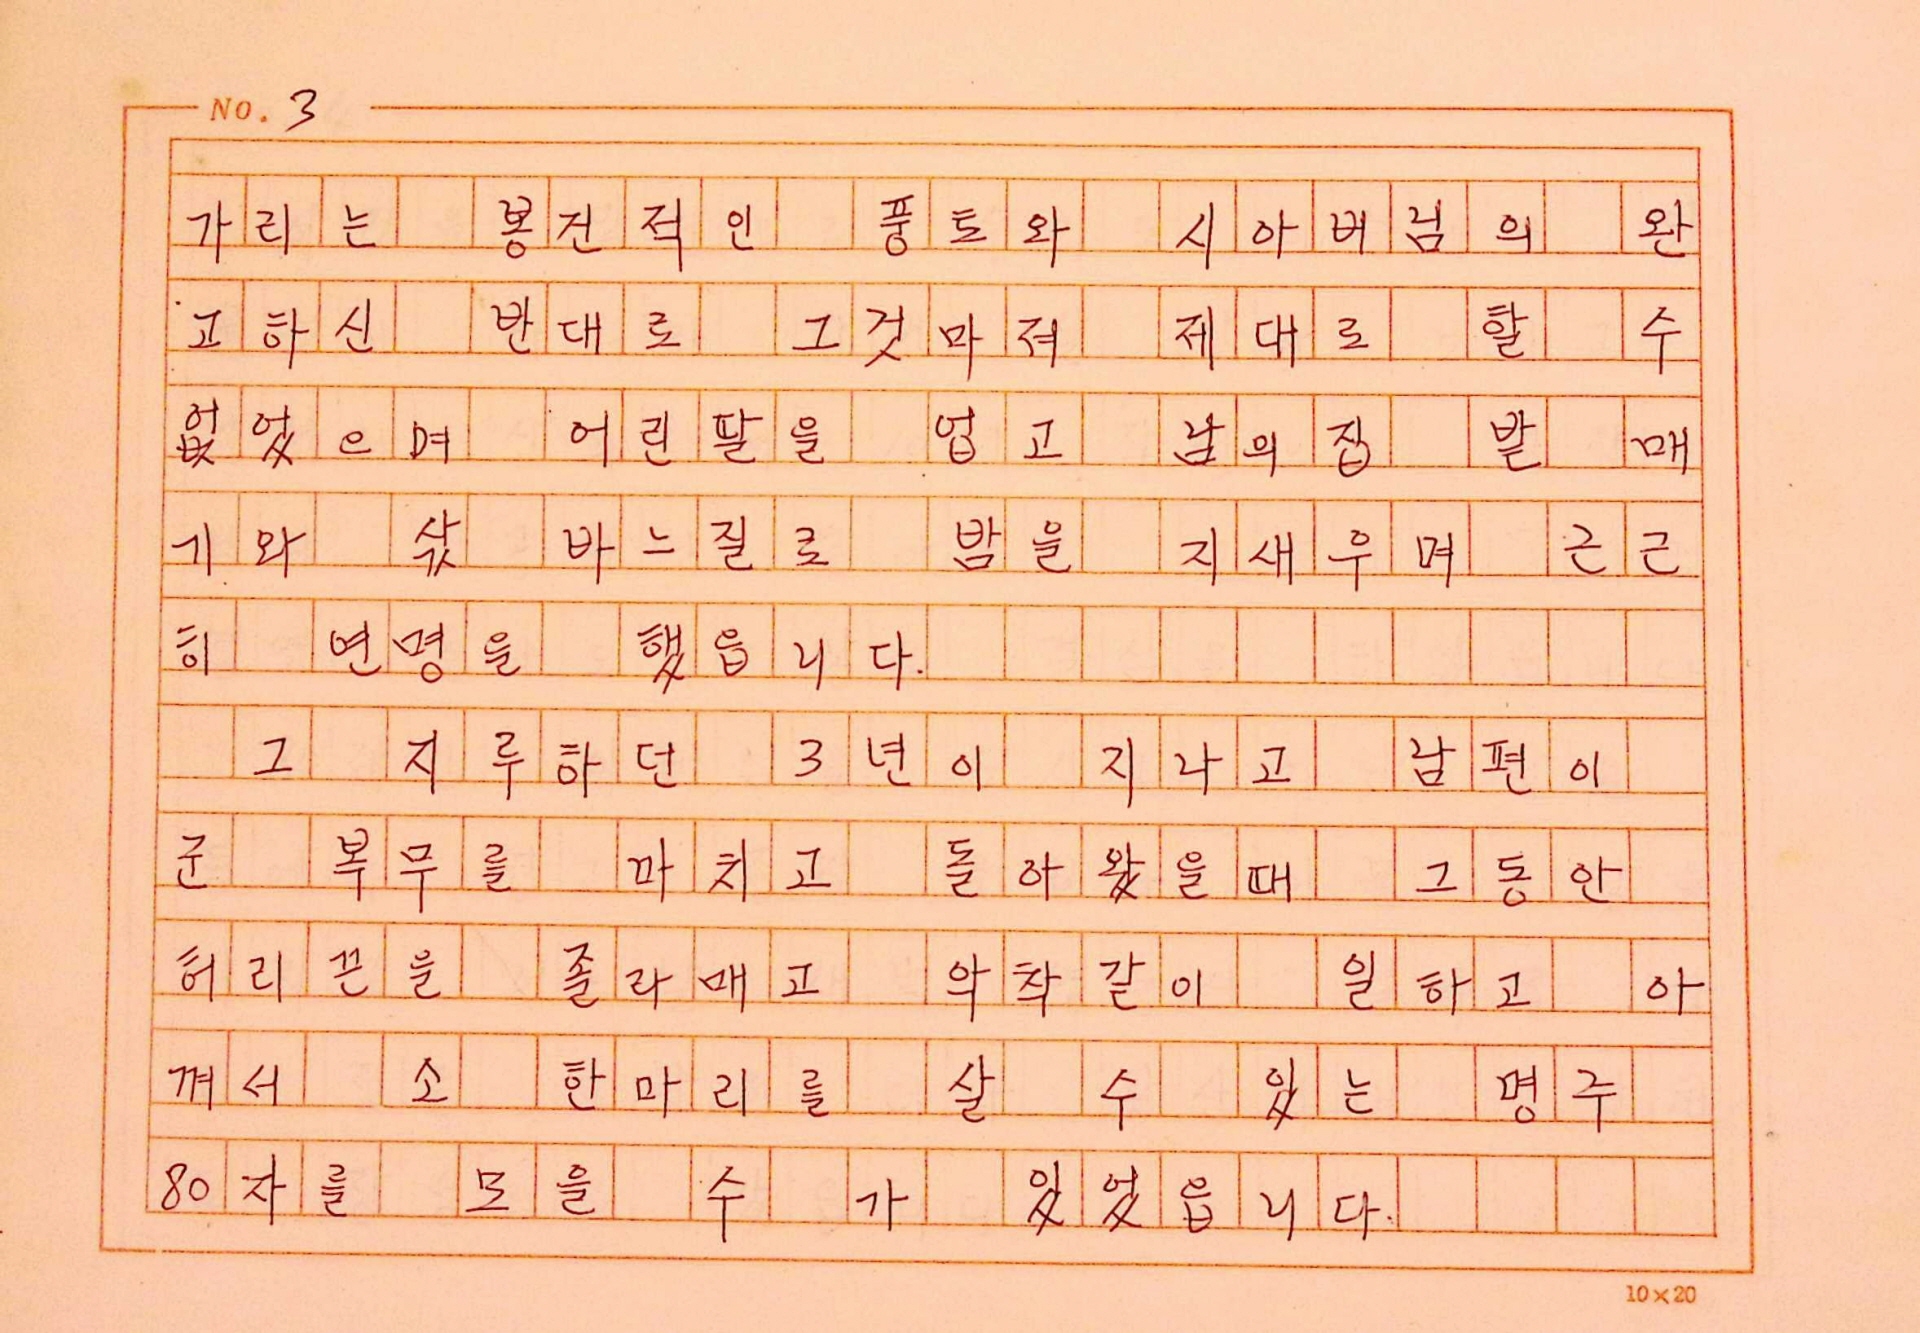 No. 3
가리는 봉건적인 풍토와 시아버님의 완
고하신 반대로 그것마져 제대로 할 수
없었으며 어린딸을 업고 남의집 밭 매
기와 삯 바느질로 밤을 지새우며 근근
히 연명을 했읍니다.
그 지루하던 3년이 지나고 남편이
군 복무를 마치고 돌아왔을때 그동안
허리끈을 졸라매고 악착같이 일하고 아
껴서 소 한마리를 살 수 있는 명주
80자를 모을 수 가 있었읍니다.
10×20